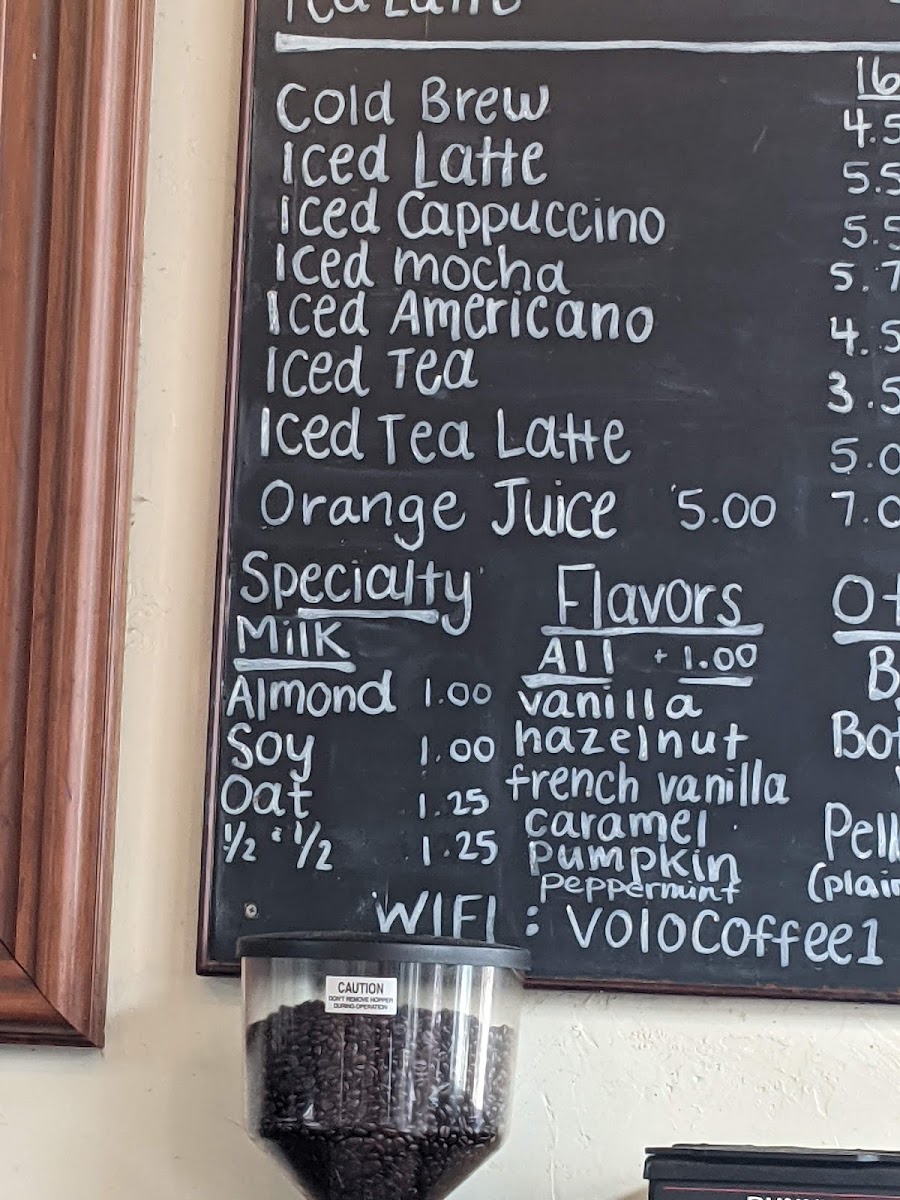 Tea Latte
16
Cold Brew 4.5
Iced Latte 5.5
Iced Cappuccino 5.5
Iced mocha 5.7
Iced Americano 4.5
Iced Tea 3.5
Iced Tea Latte 5.0
Orange Juice 5.00 7.0
Specialty
Milk
Almond 1.00
Soy 1.00
Oat 1.25
1/2 & 1/2 1.25
Flavors
All + 1.00
vanilla
hazelnut
french vanilla
caramel
pumpkin
peppermint
Pell
(plain
WIFI : VoloCoffee1
CAUTION
DON'T REMOVE HOPPER
DURING OPERATION